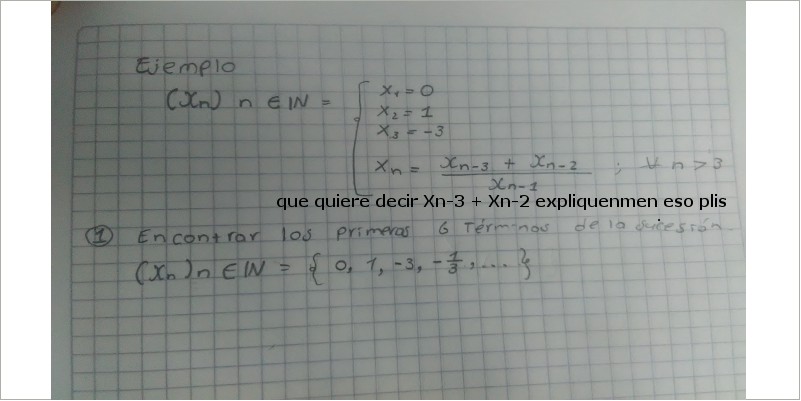 Ejemplo
(Xn) n ∈ IN = { X₁ = 0
X₂ = 1
X₃ = -3
Xn = (Xn-3 + Xn-2) / Xn-1 ; ∀ n > 3
que quiere decir Xn-3 + Xn-2 expliquenmen eso plis
① Encontrar los primeros 6 Términos de la sucesión.
(Xn) n ∈ IN = { 0, 1, -3, -1/3, ... }